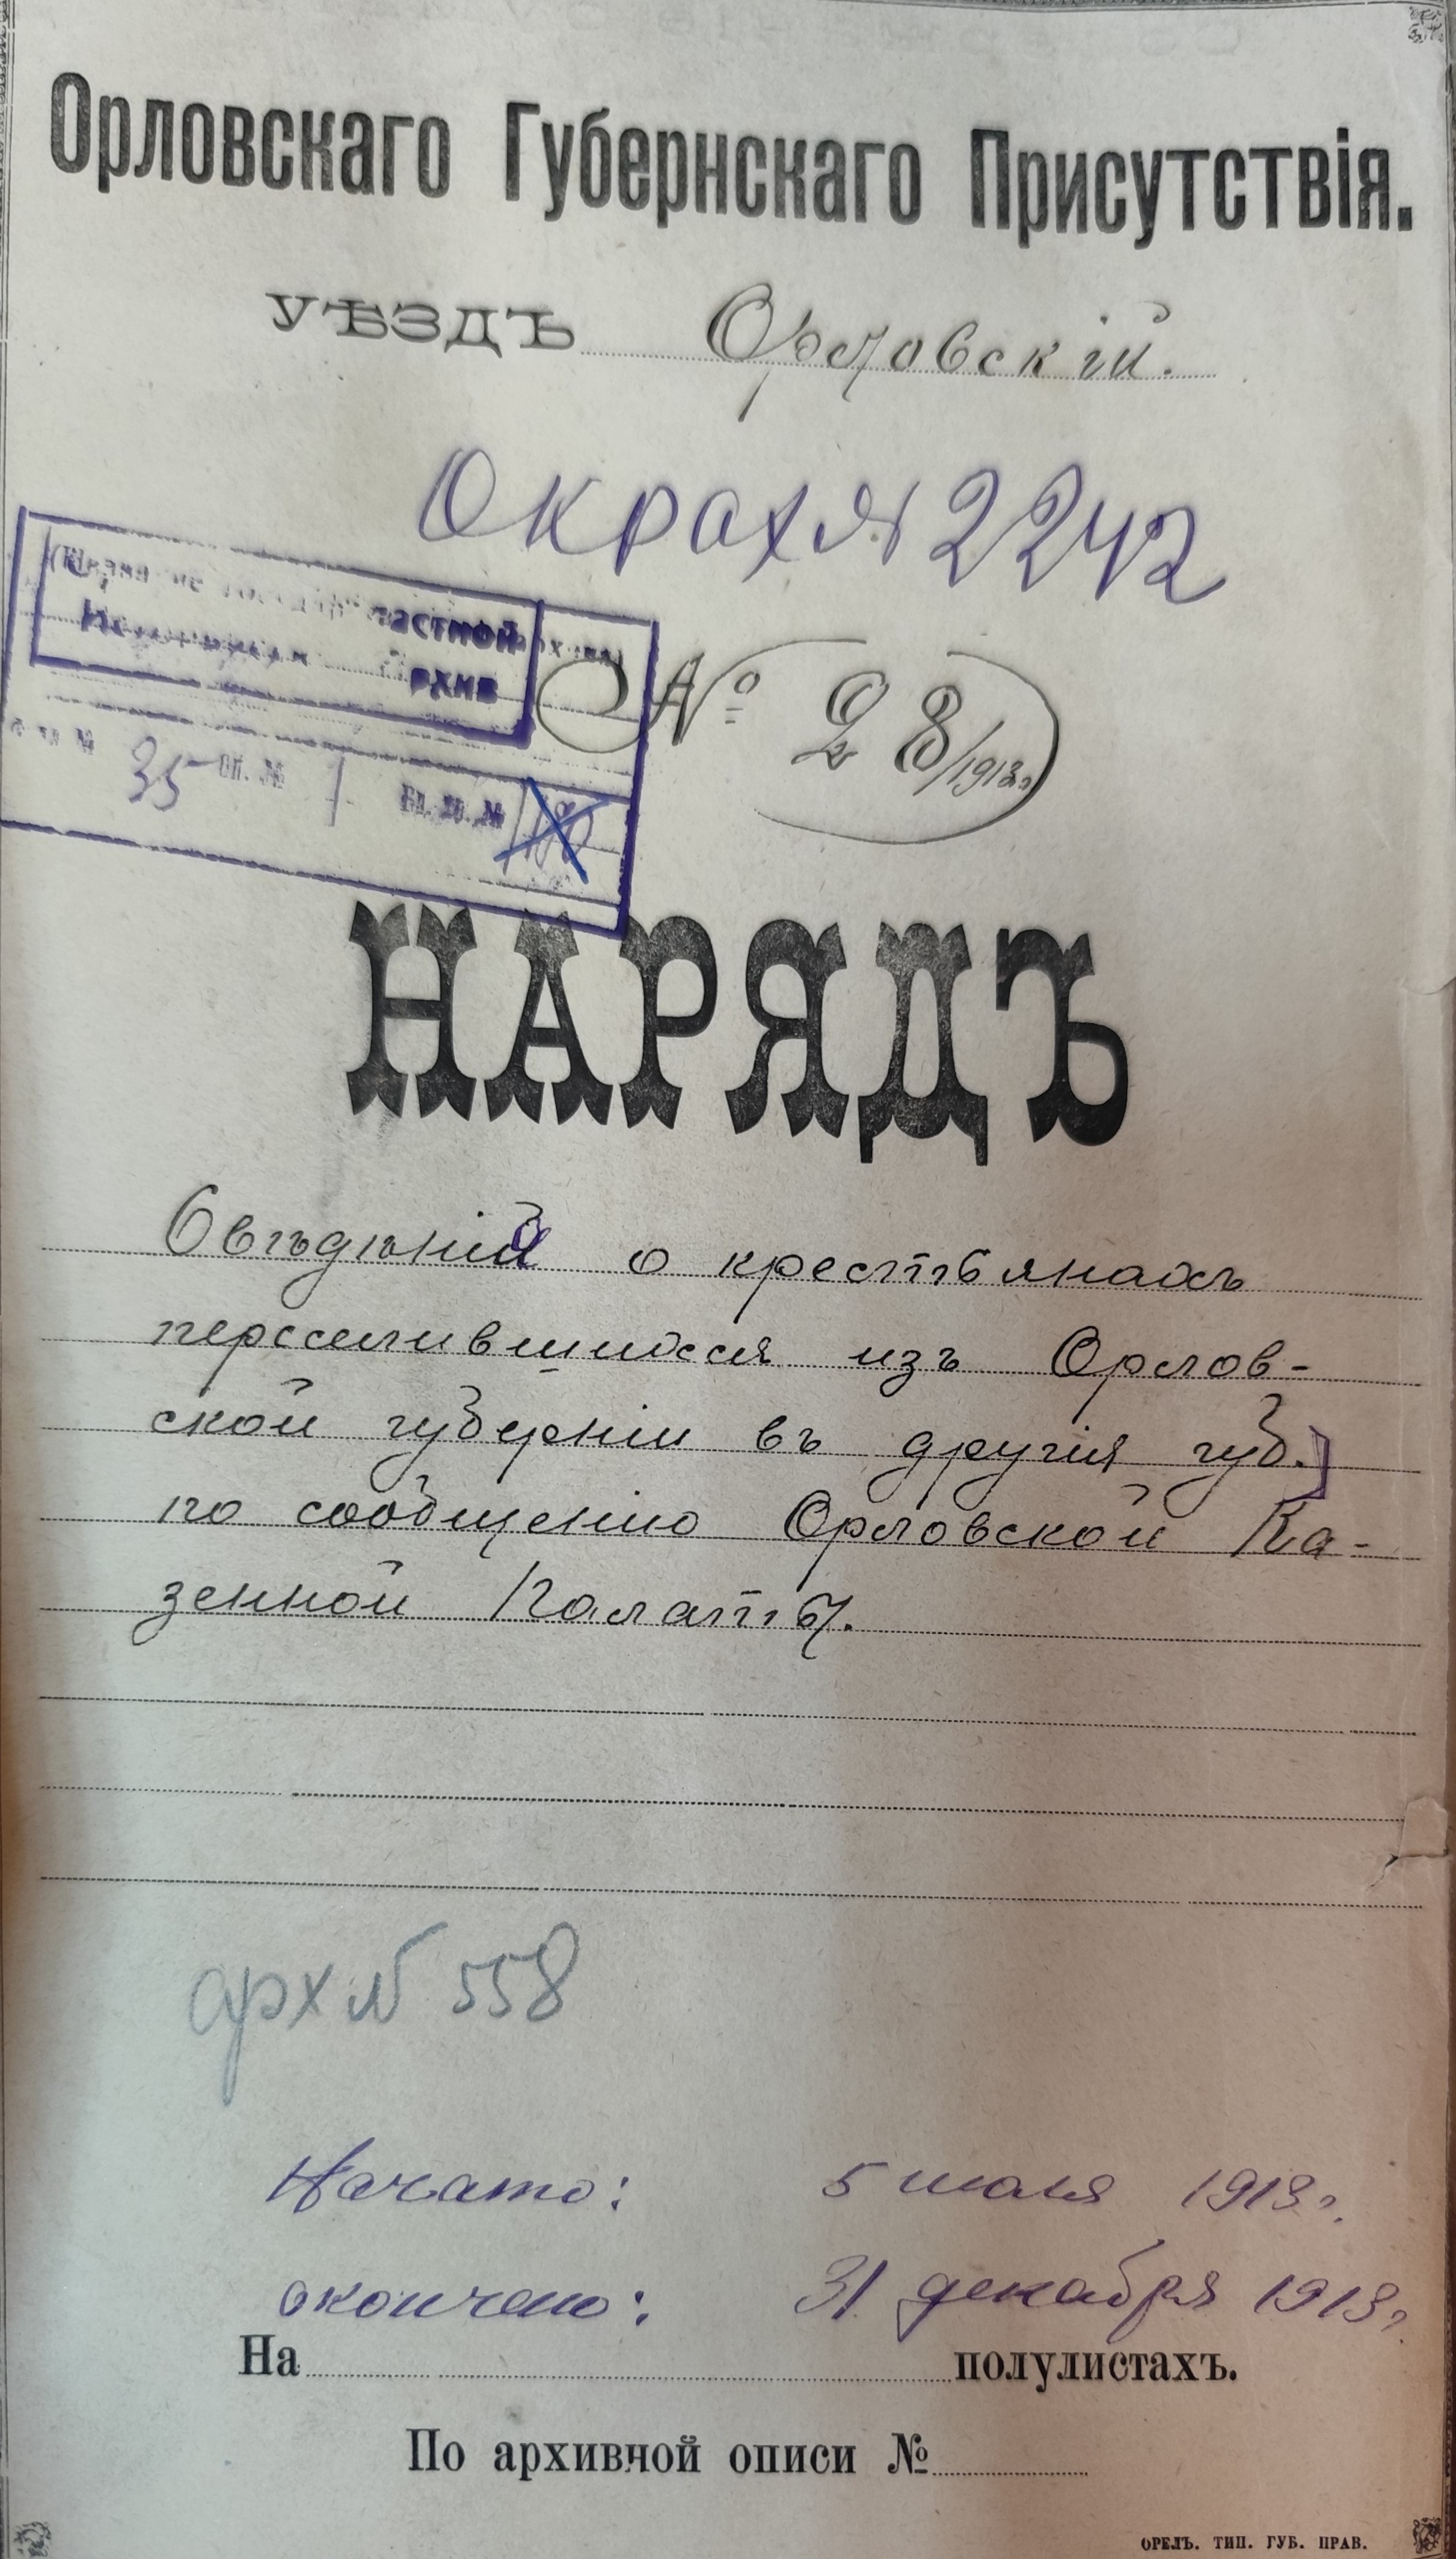 Орловскаго Губернскаго Присутствія.
УѢЗДЪ Орловскій.
Окрах № 2242
астной
рхив
№ 35 Оп. № 1 Ед. хр. №
№ 28/1913г.
НАРЯДЪ
Свѣдѣнія о крестьянахъ
переселившихся изъ Орлов-
ской губерніи въ другія губ.]
по сообщенію Орловской Ка-
зенной Палаты.
арх № 558
Начато: 5 июля 1913г.
окончено: 31 декабря 1913г.
На полулистахъ.
По архивной описи №
ОРЕЛЪ. ТИП. ГУБ. ПРАВ.